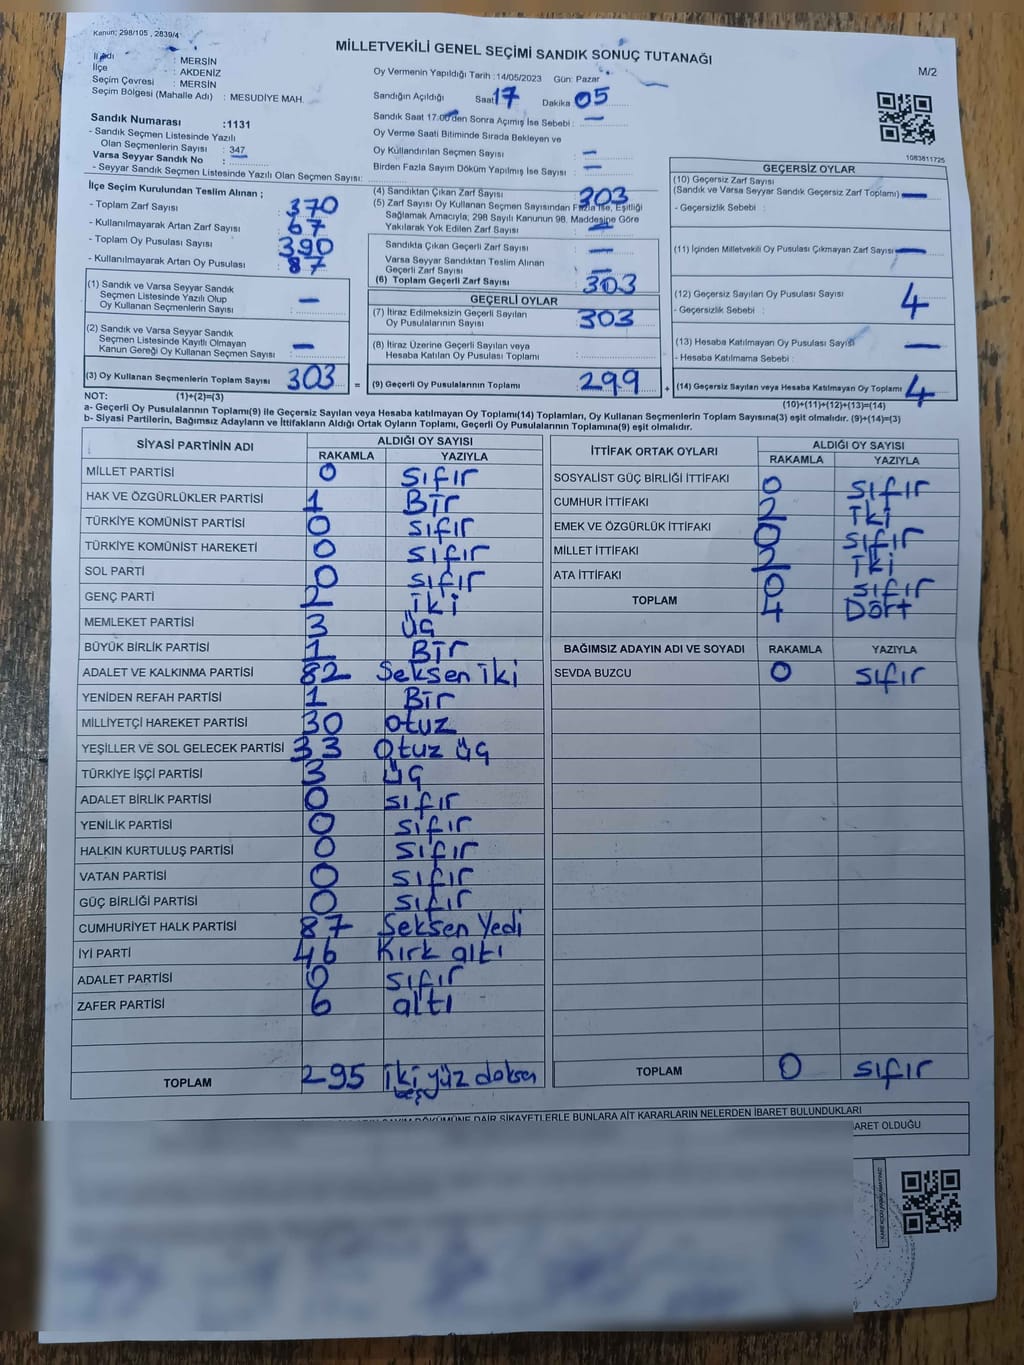 Kanun; 298/105 , 2839/4
MİLLETVEKİLİ GENEL SEÇİMİ SANDIK SONUÇ TUTANAĞI
M/2
İl Adı : MERSİN
İlçe : AKDENİZ
Seçim Çevresi : MERSİN
Seçim Bölgesi (Mahalle Adı) : MESUDİYE MAH.
Oy Vermenin Yapıldığı Tarih :14/05/2023 Gün: Pazar
Sandığın Açıldığı Saat 17 Dakika 05
Sandık Saat 17.00'den Sonra Açımış İse Sebebi : —
Oy Verme Saati Bitiminde Sırada Bekleyen ve
Oy Kullandırılan Seçmen Sayısı : —
Birden Fazla Sayım Döküm Yapılmış İse Sayısı : —
Sandık Numarası :1131
- Sandık Seçmen Listesinde Yazılı
Olan Seçmenlerin Sayısı : 347
Varsa Seyyar Sandık No :
- Seyyar Sandık Seçmen Listesinde Yazılı Olan Seçmen Sayısı:
İlçe Seçim Kurulundan Teslim Alınan ;
- Toplam Zarf Sayısı : 370
- Kullanılmayarak Artan Zarf Sayısı : 67
- Toplam Oy Pusulası Sayısı : 390
- Kullanılmayarak Artan Oy Pusulası : 87
(1) Sandık ve Varsa Seyyar Sandık
Seçmen Listesinde Yazılı Olup
Oy Kullanan Seçmenlerin Sayısı : —
(2) Sandık ve Varsa Seyyar Sandık
Seçmen Listesinde Kayıtlı Olmayan
Kanun Gereği Oy Kullanan Seçmen Sayısı : —
(3) Oy Kullanan Seçmenlerin Toplam Sayısı : 303
(4) Sandıktan Çıkan Zarf Sayısı : 303
(5) Zarf Sayısı Oy Kullanan Seçmen Sayısından Fazla İse, Eşitliği
Sağlamak Amacıyla; 298 Sayılı Kanunun 98. Maddesine Göre
Yakılarak Yok Edilen Zarf Sayısı : —
Sandıkta Çıkan Geçerli Zarf Sayısı : —
Varsa Seyyar Sandıktan Teslim Alınan
Geçerli Zarf Sayısı : —
(6) Toplam Geçerli Zarf Sayısı : 303
GEÇERLİ OYLAR
(7) İtiraz Edilmeksizin Geçerli Sayılan
Oy Pusulalarının Sayısı : 303
(8) İtiraz Üzerine Geçerli Sayılan veya
Hesaba Katılan Oy Pusulası Toplamı :
= (9) Geçerli Oy Pusulalarının Toplamı : 299 +
1083811725
GEÇERSİZ OYLAR
(10) Geçersiz Zarf Sayısı
(Sandık ve Varsa Seyyar Sandık Geçersiz Zarf Toplamı) : —
- Geçersizlik Sebebi :
(11) İçinden Milletvekili Oy Pusulası Çıkmayan Zarf Sayısı : —
(12) Geçersiz Sayılan Oy Pusulası Sayısı : 4
- Geçersizlik Sebebi :
(13) Hesaba Katılmayan Oy Pusulası Sayısı : —
- Hesaba Katılmama Sebebi :
(14) Geçersiz Sayılan veya Hesaba Katılmayan Oy Toplamı : 4
NOT: (1)+(2)=(3)
(10)+(11)+(12)+(13)=(14)
a- Geçerli Oy Pusulalarının Toplamı(9) ile Geçersiz Sayılan veya Hesaba katılmayan Oy Toplamı(14) Toplamları, Oy Kullanan Seçmenlerin Toplam Sayısına(3) eşit olmalıdır. (9)+(14)=(3)
b- Siyasi Partilerin, Bağımsız Adayların ve İttifakların Aldığı Ortak Oyların Toplamı, Geçerli Oy Pusulalarının Toplamına(9) eşit olmalıdır.
SİYASİ PARTİNİN ADI ALDIĞI OY SAYISI
RAKAMLA YAZIYLA
MİLLET PARTİSİ 0 sıfır
HAK VE ÖZGÜRLÜKLER PARTİSİ 1 Bir
TÜRKİYE KOMÜNİST PARTİSİ 0 sıfır
TÜRKİYE KOMÜNİST HAREKETİ 0 sıfır
SOL PARTİ 0 sıfır
GENÇ PARTİ 2 iki
MEMLEKET PARTİSİ 3 üç
BÜYÜK BİRLİK PARTİSİ 1 Bir
ADALET VE KALKINMA PARTİSİ 82 Seksen iki
YENİDEN REFAH PARTİSİ 1 Bir
MİLLİYETÇİ HAREKET PARTİSİ 30 otuz
YEŞİLLER VE SOL GELECEK PARTİSİ 33 Otuz üç
TÜRKİYE İŞÇİ PARTİSİ 3 üç
ADALET BİRLİK PARTİSİ 0 sıfır
YENİLİK PARTİSİ 0 sıfır
HALKIN KURTULUŞ PARTİSİ 0 sıfır
VATAN PARTİSİ 0 sıfır
GÜÇ BİRLİĞİ PARTİSİ 0 sıfır
CUMHURİYET HALK PARTİSİ 87 Seksen Yedi
İYİ PARTİ 46 Kırk altı
ADALET PARTİSİ 0 sıfır
ZAFER PARTİSİ 6 altı
TOPLAM 295 iki yüz doksan
beş
İTTİFAK ORTAK OYLARI ALDIĞI OY SAYISI
RAKAMLA YAZIYLA
SOSYALİST GÜÇ BİRLİĞİ İTTİFAKI 0 sıfır
CUMHUR İTTİFAKI 2 İki
EMEK VE ÖZGÜRLÜK İTTİFAKI 0 sıfır
MİLLET İTTİFAKI 2 İki
ATA İTTİFAKI 0 sıfır
TOPLAM 4 Dört
BAĞIMSIZ ADAYIN ADI VE SOYADI RAKAMLA YAZIYLA
SEVDA BUZCU 0 sıfır
TOPLAM 0 sıfır
DÖKÜMÜNE DAİR ŞİKAYETLERLE BUNLARA AİT KARARLARIN NELERDEN İBARET BULUNDUKLARI
OLDUĞU